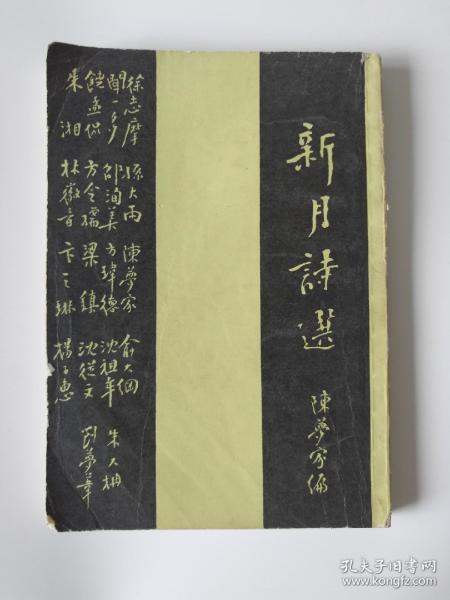 新月詩選
陳夢家編
徐志摩 孫大雨 陳夢家 俞大綱
聞一多 邵洵美 方瑋德 沈祖牟 朱大枏
饒孟侃 方令孺 梁鎮 沈從文 劉夢葦
朱湘 林徽音 卞之琳 楊子惠
孔夫子旧书网
www.kongfz.com